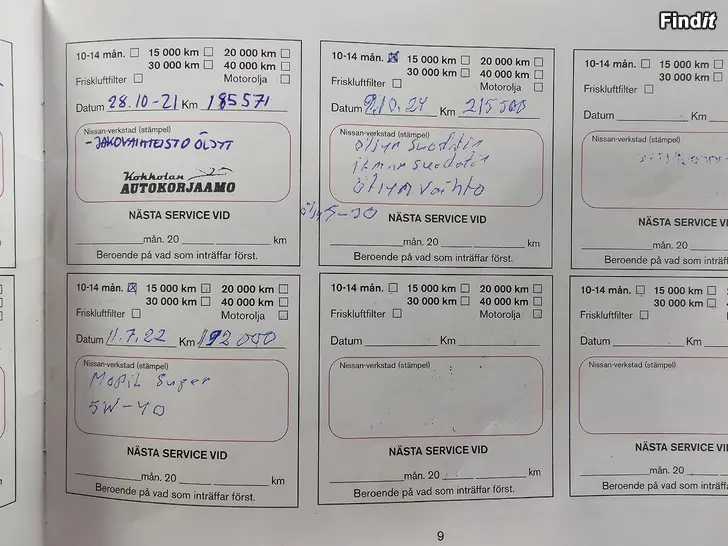 Findit
10-14 mån. 15 000 km 20 000 km
30 000 km 40 000 km
Friskluftfilter Motorolja
Datum 28.10-21 Km 185571
Nissan-verkstad (stämpel)
-JAKOVAIHTEISTO ÖLJYT
Kokkolan
AUTOKORJAAMO
NÄSTA SERVICE VID
mån. 20 km
Beroende på vad som inträffar först.
10-14 mån. 15 000 km 20 000 km
30 000 km 40 000 km
Friskluftfilter Motorolja
Datum 9.10.24 Km 215500
Nissan-verkstad (stämpel)
öljyn suodatin
ilman suodatin
öljyn vaihto
5-30
NÄSTA SERVICE VID
mån. 20 km
Beroende på vad som inträffar först.
10-14 mån.
Friskluftfilter
Datum Km
Nissan-verkstad (stämpel)
NÄSTA SERVICE VI
mån. 20
Beroende på vad som inträffa
10-14 mån. 15 000 km 20 000 km
30 000 km 40 000 km
Friskluftfilter Motorolja
Datum 11.7.22 Km 192000
Nissan-verkstad (stämpel)
Mobil Super
5W-40
NÄSTA SERVICE VID
mån. 20 km
Beroende på vad som inträffar först.
10-14 mån. 15 000 km 20 000 km
30 000 km 40 000 km
Friskluftfilter Motorolja
Datum Km
Nissan-verkstad (stämpel)
NÄSTA SERVICE VID
mån. 20 km
Beroende på vad som inträffar först.
10-14 mån. 15 000 km
30 000 km
Friskluftfilter
Datum Km
Nissan-verkstad (stämpel)
NÄSTA SERVICE VI
mån. 20
Beroende på vad som inträffar
9